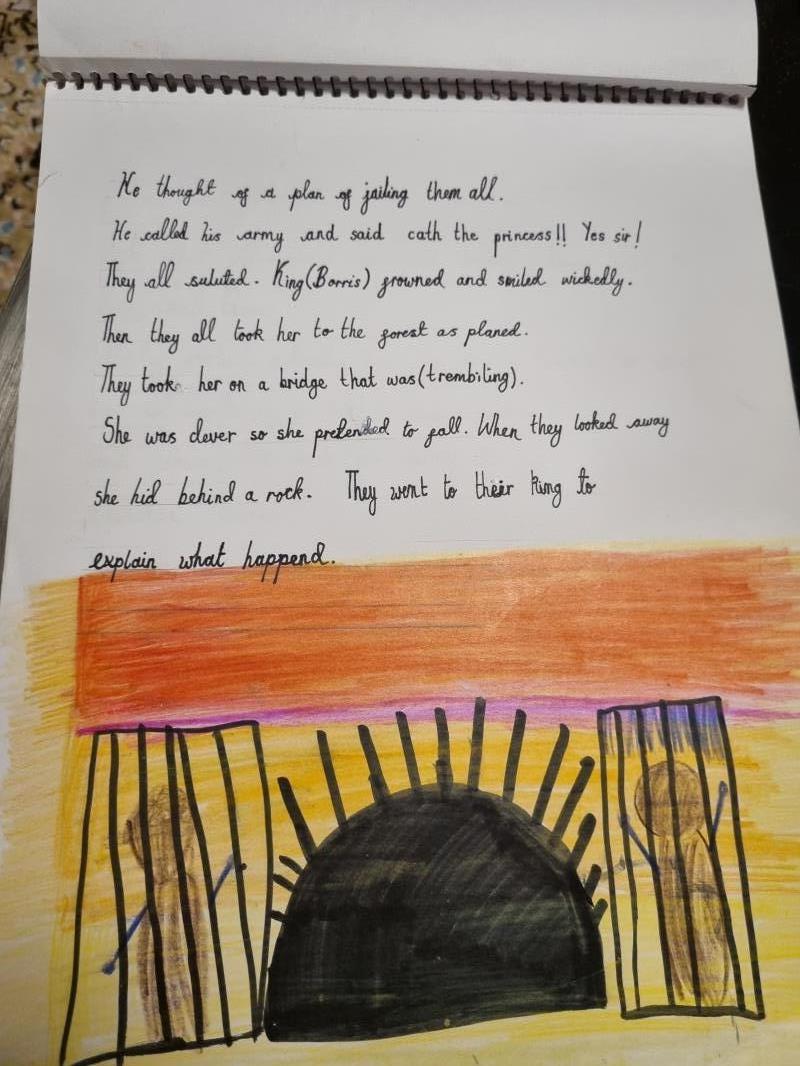 He thought of a plan of jailing them all.
He called his army and said cath the princess!! Yes sir!
They all suluted. King(Borris) growned and smiled wickedly.
Then they all took her to the forest as planed.
They took her on a bridge that was(trembiling).
She was clever so she pretended to fall. When they looked away
she hid behind a rock. They went to their King to
explain what happend.